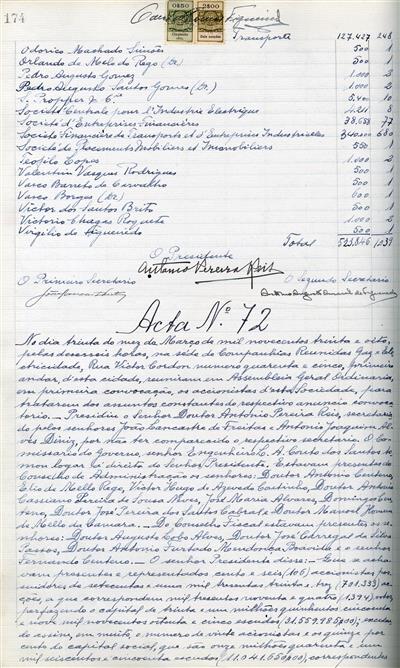 174
Transporte 127.427 248
Odorico Machado Simões 500 1
Orlando de Mello do Rego (Dr.) 500 1
Pedro Augusto Gomez 1.000 2
Pedro Augusto Santos Gomes (Dr.) 1.000 2
S. Propper & Cª 5.400 10
Société Centrale pour l'Industrie Electrique 4.211 8
Société d'Entreprises Financières 38.658 77
Société Financière de Transports et d'Entreprises Industrielles 340.000 680
Société de Placements Mobiliers et Immobiliers 550 1
Teófilo Lopes 1.000 2
Valentim Vasques Rodrigues 500 1
Vasco Barreto de Carvalho 500 1
Vasco Borges (Dr) 600 1
Victor dos Santos Brito 500 1
Victorio Chagas Roquette 1.000 2
Virgilio de Figueiredo 500 1
Total 523.846 1.039
O Presidente
António Pereira Reis
O Primeiro Secretario O Segundo Secretario
Acta Nº 72
No dia trinta do mez de Março de mil novecentos trinta e oito,
pelas dezesseis horas, na séde de Companhias Reunidas Gaz e Ele-
ctricidade, Rua Victor Cordon numero quarenta e cinco, primeiro
andar, d'esta cidade, reuniram em Assembleia Geral Ordinaria,
em primeira convocação, os accionistas d'esta Sociedade, para
tratarem dos assuntos constantes do respectivo anuncio convoca-
torio. — Presidiu o Senhor Doutor António Pereira Reis, secretaria-
do pelos senhores João Lencastre de Freitas e Antonio Joaquim Al-
ves Diniz, por não ter comparecido o respectivo secretario. O Co-
missario do Governo, senhor Engenheiro L. A. Couto dos Santos to-
mou logar á direita do Senhor Presidente. Estavam presentes do
Conselho de Administração os senhores: Doutor Antonio Centeno,
Elio de Mello Rego, Victor Hugo de Azevedo Coutinho, Doutor Antonio
Casimiro Pereira de Sousa Maia, José Maria Alvares, Domingo Cen-
teno, Doutor José Pereira dos Santos Cabral e Doutor Manoel Homem
de Mello da Camara. — Do Conselho Fiscal estavam presentes os se-
nhores: Doutor Augusto Lobo Alves, Doutor José Carregal da Silva
Passos, Doutor Antonio Furtado Mendonça Boavida e o senhor
Fernando Centeno. — O senhor Presidente disse: — Que se acha-
vam presentes e representados cento e seis (106) accionistas pos-
suidores de setecentas e uma mil trezentas trinta e trez (701.333) ac-
ções, a que correspondem mil trezentos noventa e quatro (1.394) votos,
perfazendo o capital de trinta e um milhões quinhentos cincoenta
e nove mil novecentos oitenta e cinco escudos (31.559.985$00); exceden-
do assim, em muito, o numero de vinte accionistas e os quinze por
cento do capital social, que são onze milhões quarenta e um
mil seiscentos e cincoenta escudos (11.041.650$00), correspondentes